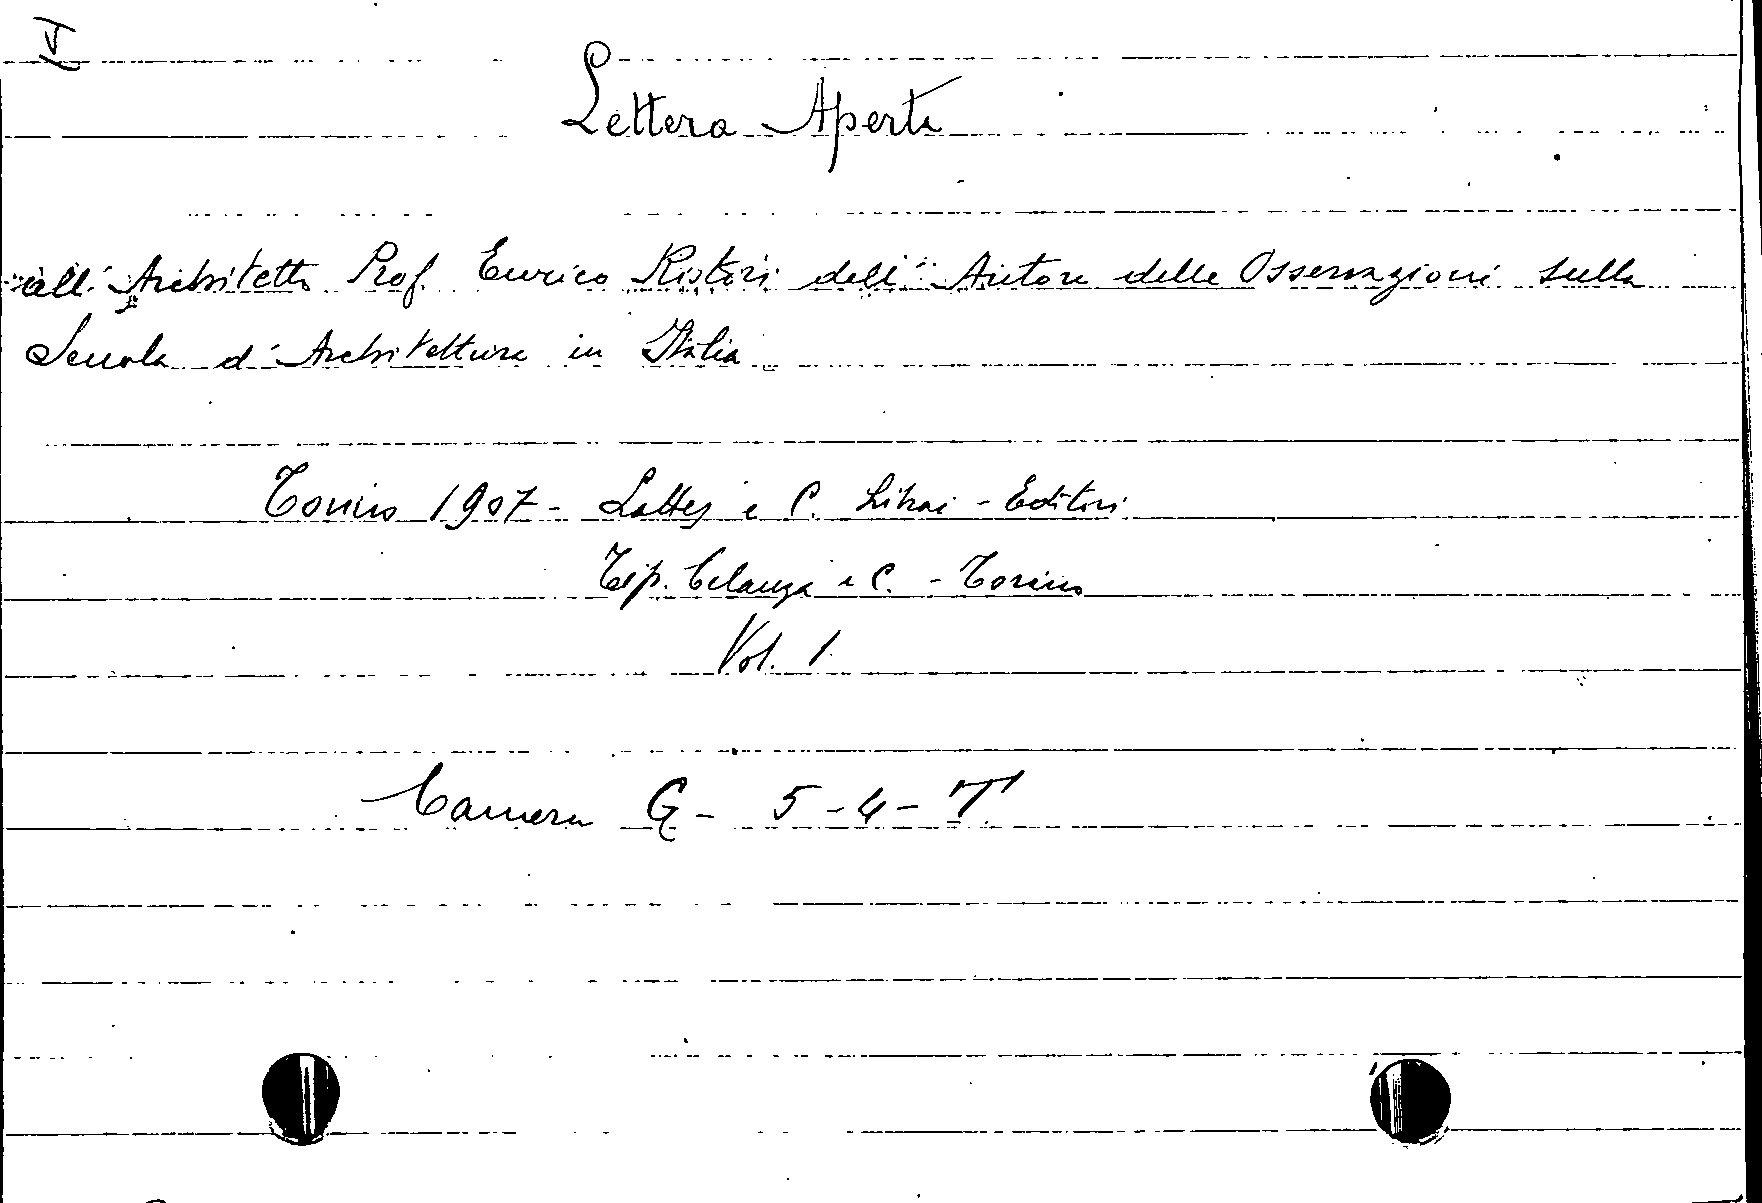 V
Lettera Aperta
all'Architetto Prof. Enrico Ristori dell'Autore delle Osservazioni sulla
Scuola d'Architettura in Italia
Torino 1907 - Lattes e C. Librai - Editori
Tip. Celanza e C. - Torino
Vol. 1
Camera G - 5 - 4 - T